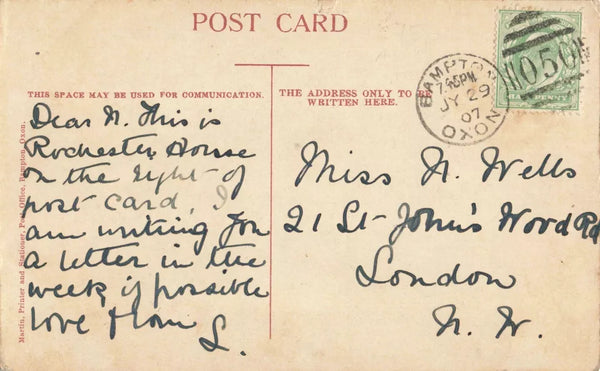 POST CARD
THIS SPACE MAY BE USED FOR COMMUNICATION.
THE ADDRESS ONLY TO BE
WRITTEN HERE.
Dear N. This is
Rochester House
on the right of
post card, I
am writing you
a letter in the
week if possible
love from
L.
Miss N. Wells
21 St. John's Wood Rd
London
N. W.
BAMPTON
7.45PM
JY 29
07
OXON
050
PENNY
Martin, Printer and Stationer, Post Office, Bampton, Oxon.